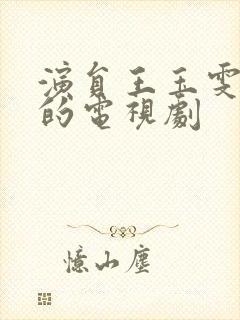 演員王玉雯
的電視劇
憶山塵